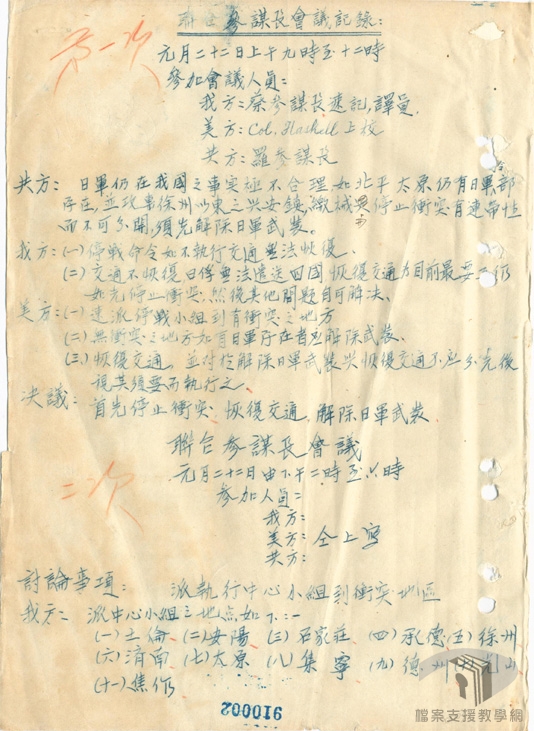 聯合參謀長會議記錄：
第一次
元月二十二日上午九時至十二時
參加會議人員：
我方：蔡參謀長速記，譯員
美方：Col. Haskell 上校
共方：羅參謀長
共方：日軍仍在我國之事实極不合理 如北平 太原仍有日軍部
存在，並攻事徐州以東之兴安鎮，繳械与停止衝突有連帶性
而不可分開，須先解除日軍武裝。
我方：(一)停戰命令如不執行交通無法恢復。
(二)交通不恢復日俘無法遣送回國 恢復交通为目前最要工作
如先停止衝突，然後其他問題自可解决。
美方：(一)速派停戰小組到有衝突之地方
(二)無衝突之地方如有日軍存在者应解除武裝。
(三)恢復交通，並对於解除日軍武裝與恢復交通不应分先後
視其須要而執行之。
决議：首先停止衝突，恢復交通，解除日軍武裝
聯合參謀長會議
二次
元月二十二日由下午二時至六時
參加人員：
我方：
美方：仝上寫
共方：
討論事項 派執行中心小組到衝突地區
我方：派中心小組之地点如下：-
(一)土倫 (二)安陽 (三)石家莊 (四)承德 (五)徐州
(六)濟南 (七)太原 (八)集寧 (九)德州
(十一)焦作
910002
檔案支援教學網